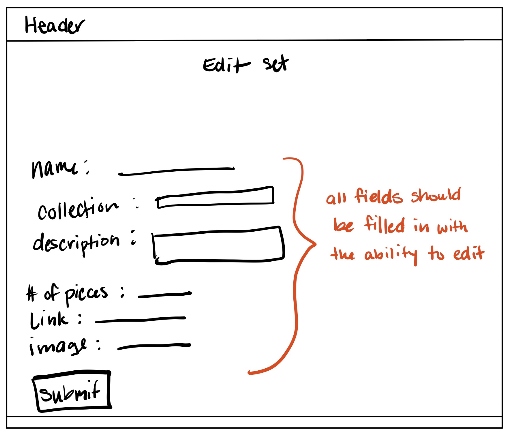 Header
Edit set
name:
collection :
description :
# of pieces :
Link :
image :
Submit
all fields should
be filled in with
the ability to edit